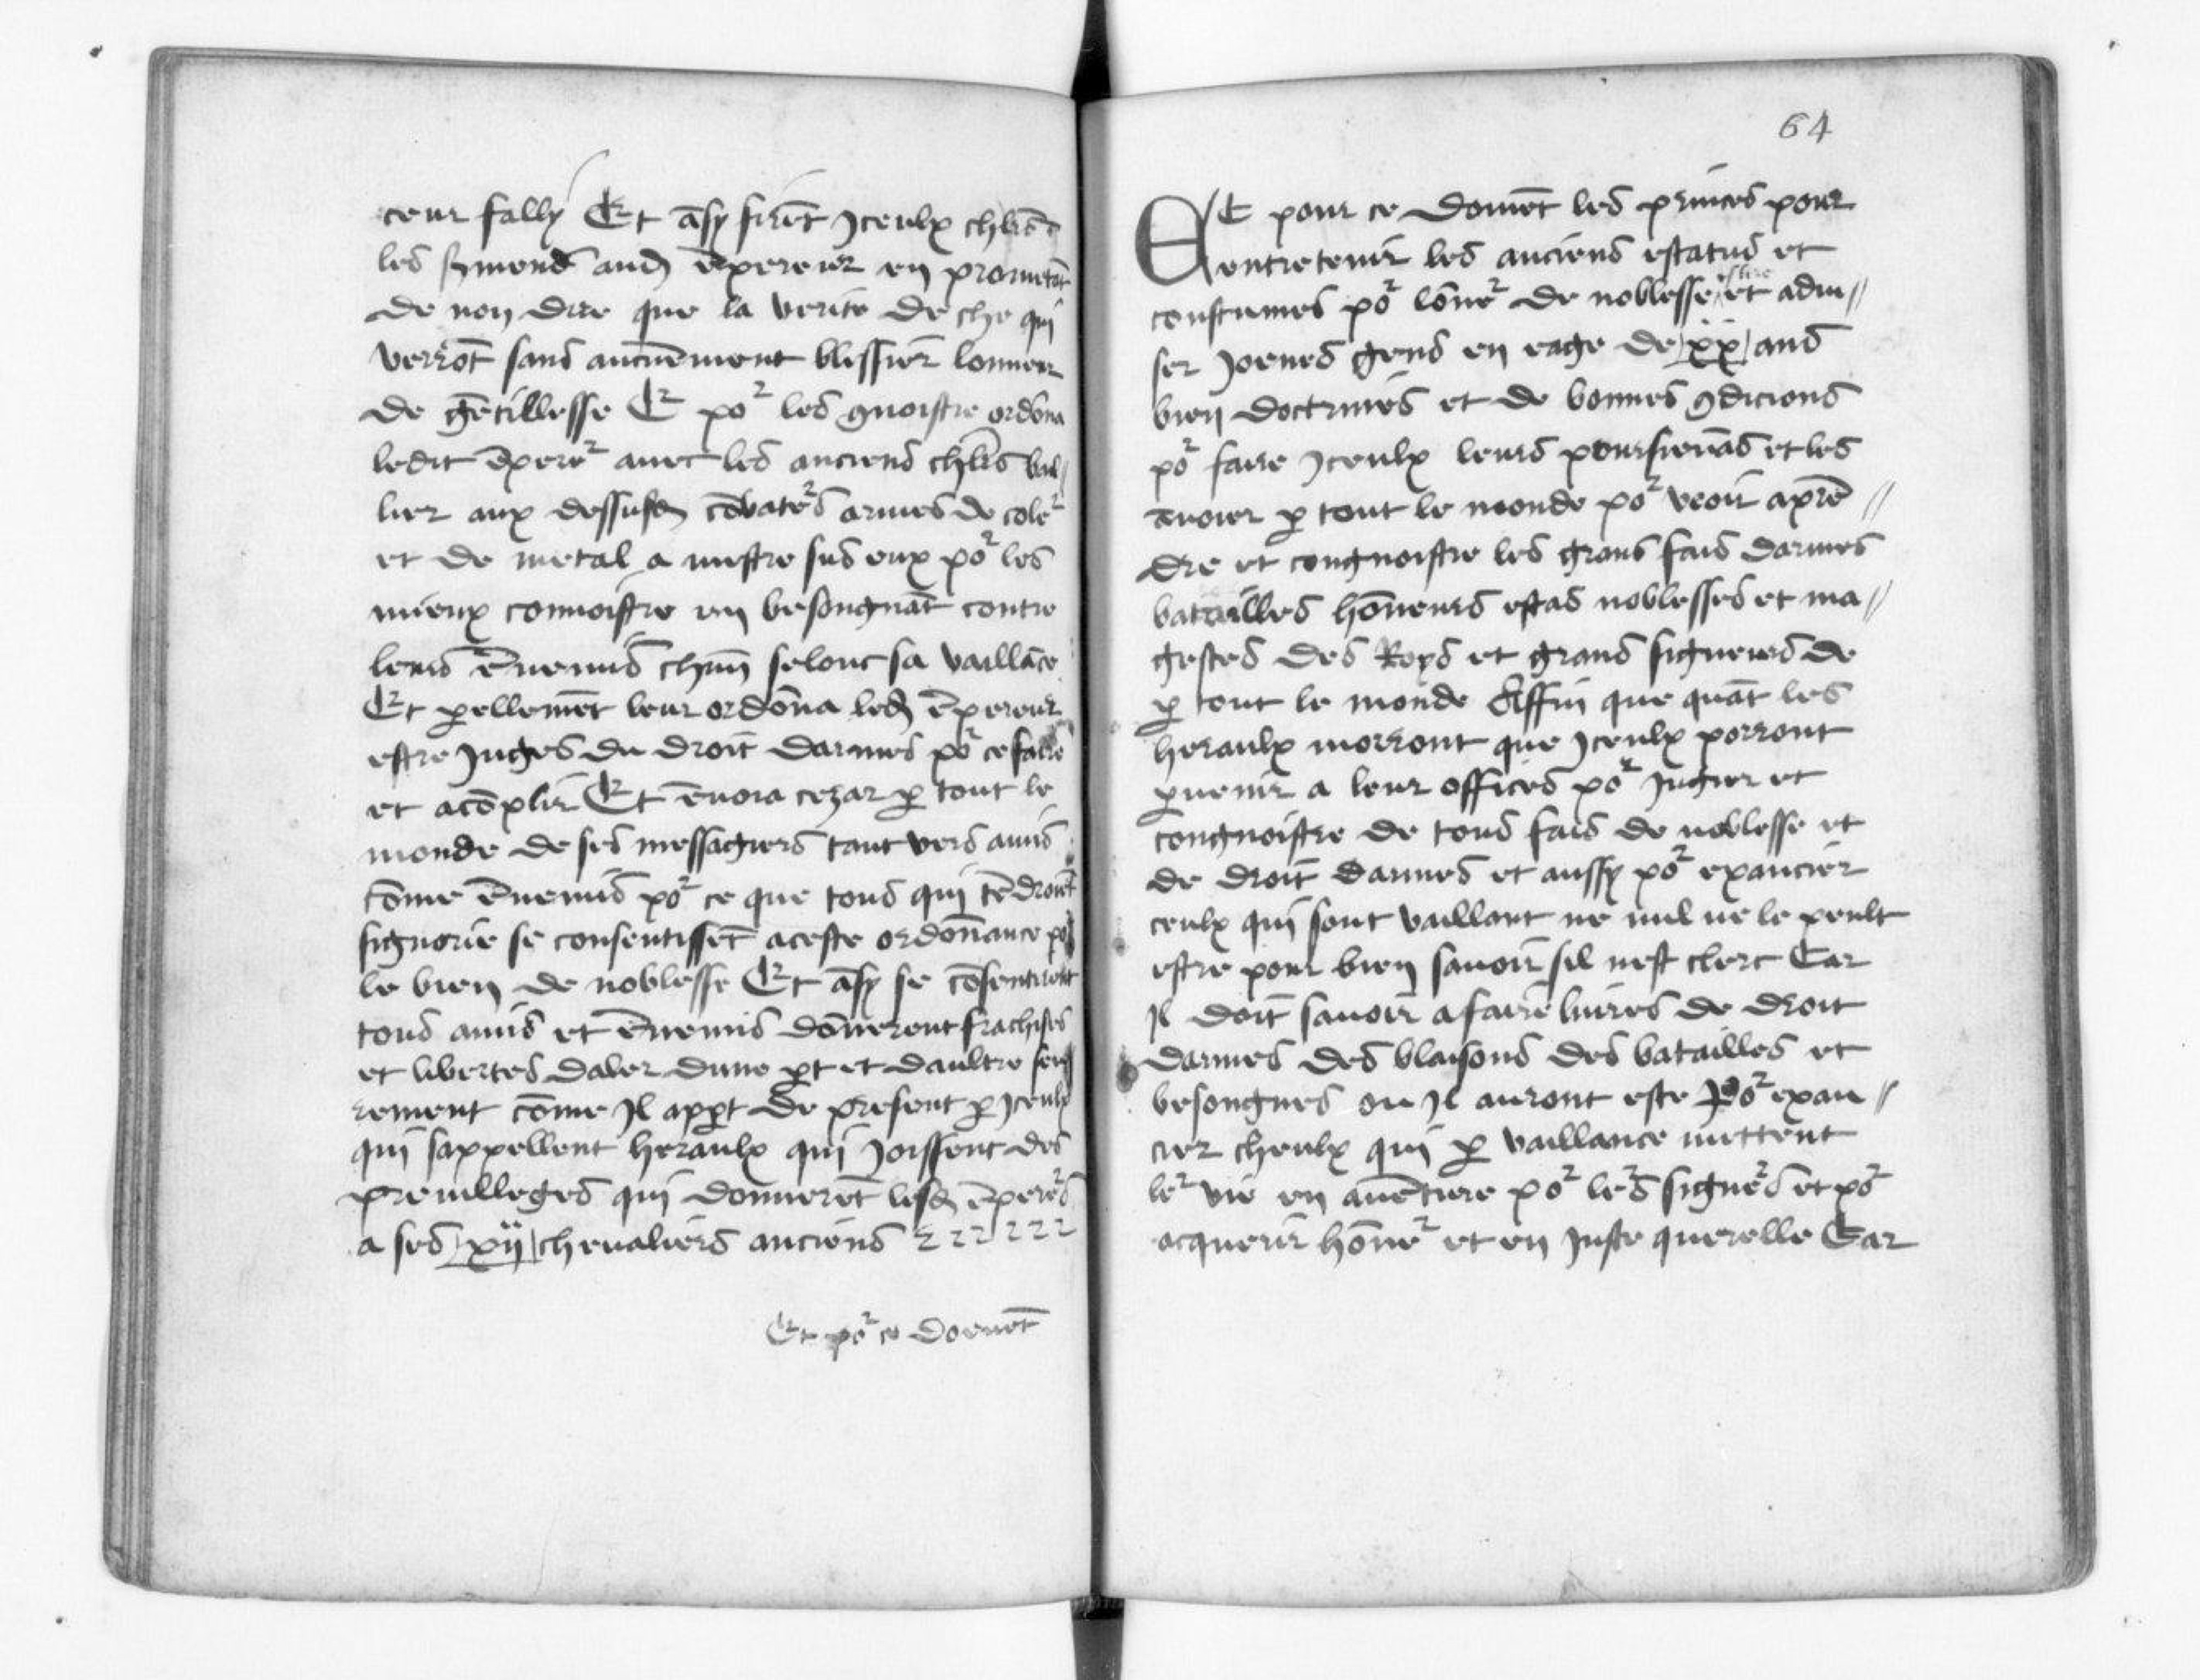 ceur fally Et āsy firēt Jceulx chlrs
les sermens aud ēpereur en prometāt
de non dire que la verite de che quj
verrōt sans aucunēment blessier lonneur
de gētillesse Et poʳ les gnoistre ordōna
ledit ēpereʳ avec les anciens chlrs bail
lier aux dessusd cōbateʳs armes de coleʳ
et de metal a mestre sus eux poʳ les
mieux connoistre en besongnāt contre
leurs ēnemis chūn selonc sa vaillāce
Et pellemēt leur ordōna led ēpereur
estre Juges du droit darmes poʳ ce faire
et acōplir Et ēvoia cezar p tout le
monde de ses messagiers tant vers amis
cōme ēnemis poʳ ce que tous quj tēdroiēt
signorie se consentissēt aceste ordōnance poʳ
le bien de noblesse Et āsy se cōsentirent
tous amis et ēnemis dōnerent frāchises
et libertes daler dune pt et daultre seu
rement cōme Jl appt de present p Jceulx
quj sappellent heraulx quj Joissent des
previlleges quj donnerēt lesd ēpereʳs
a ses xij chevaliers anciens
Et poʳ ce doevēt
64
Et pour ce doivēt les princes pour
entretenir les anciens estatus et
coustumes poʳ lōneʳ de noblesse eslire et advi
ser Joenes gens en eage de xx ans
bien doctrines et de bonnes gdicions
poʳ faire Jceulx leurs poursievās et les
ēvoier p tout le monde poʳ veoir aprē
dre et congnoistre les grans fais darmes
batailles hōneurs estas noblesses et ma
gestes des Roys et grans signeurs de
p tout le monde Affin que quāt les
heraulx morront que Jceulx porront
pvenir a leur offices poʳ Jugier et
congnoistre de tous fais de noblesse et
de droit darmes et aussy poʳ exaucier
ceulx quj sont vaillant ne nul ne le peult
estre pour bien savoir sil nest clerc Car
Jl doit savoir a faire livres de droit
darmes des blasons des batailles et
besongnes ou Jl auront este Poʳ exau
cier cheulx quj p vaillance mettent
leʳ vie en avēture poʳ leʳs signeʳs et poʳ
acquerir hōneʳ et en Juste querelle Car